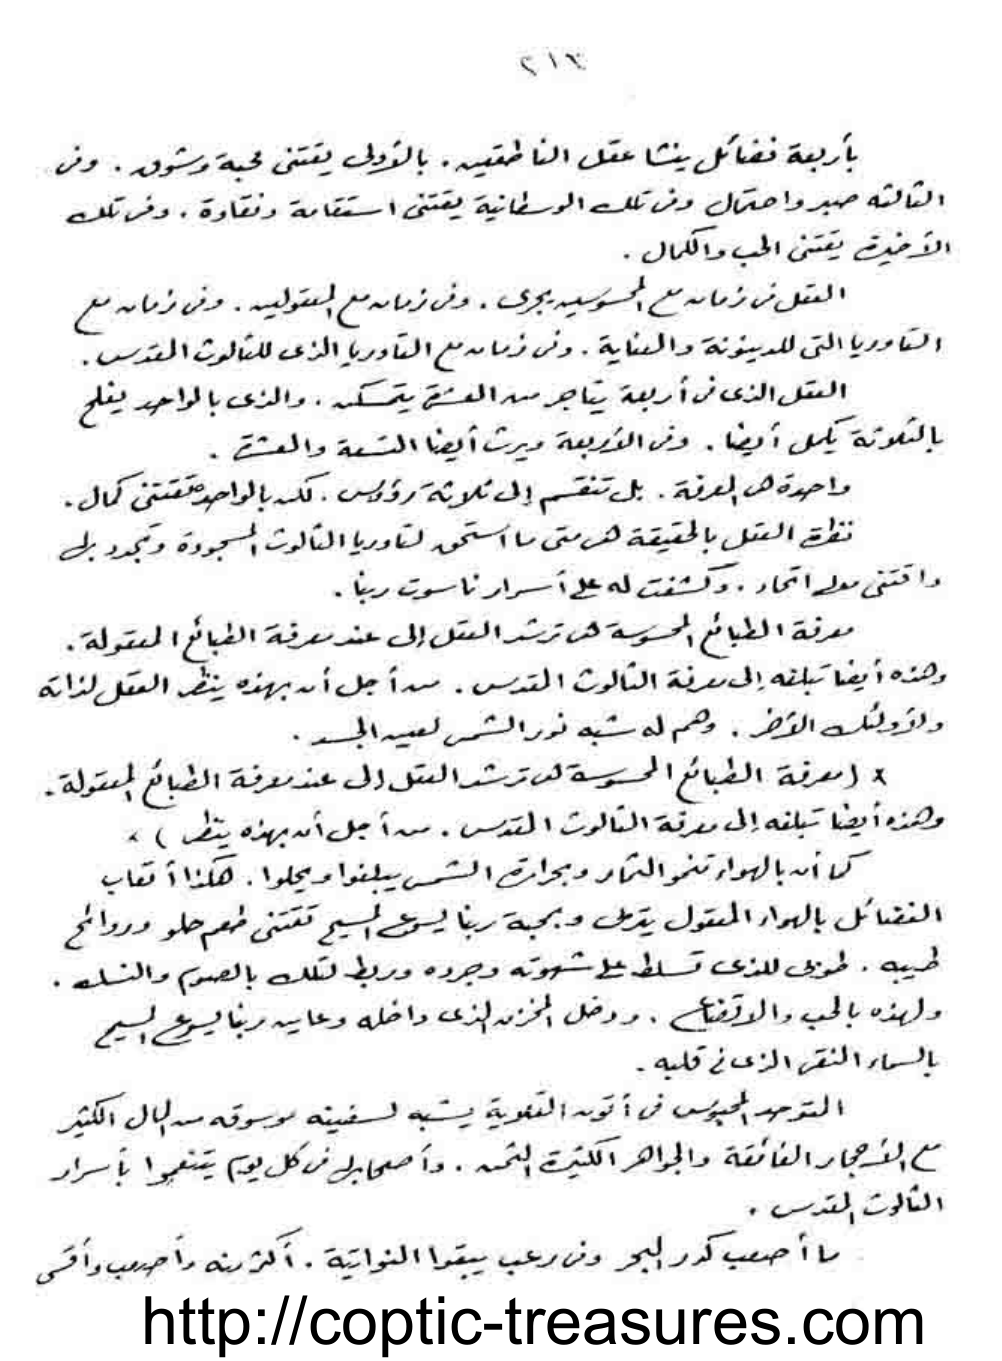 ٢١٣
بأربعة فضائل ينشا عقل الناطقين . بالأولى يقتنى محبة وشوق . وفى
الثالثه صبر واحتمال وفى تلك الوسطانية يقتنى استقامة ونقاوة . وفى تلك
الأخيرة يقتنى الحب والكمال .
العقل فى زمان مع المحسوسين يجرى . وفى زمان مع المعقولين . وفى زمان مع
التاوريا التى للدينونة والعناية . وفى زمان مع التاوريا الذى للثالوث المقدس .
العقل الذى فى أربعة يتاجر من العشرة يتمسكن . والذى بالواحد يفلح
بالثلاثة يكمل أيضا . وفى الأربعة ويرث أيضا التسعة والعشرة .
واحدة هى المعرفة . بل تنقسم إلى ثلاثة رؤوس . لكن بالواحدة تقتنى كمال .
نظرة العقل بالحقيقة هى متى ما استحق لتاوريا الثالوث المسجودة وتجدد بل
واقتنى معه اتحاد . وكشفت له على أسرار ناسوت ربنا .
معرفة الطبائع المحسوسة هى ترشد العقل إلى عند معرفة الطبائع المعقولة .
وهذه أيضا تبلغه إلى معرفة الثالوث المقدس . من أجل أن بهذه ينظر العقل لذاته
ولأولئك الأخر . وهم له شبه نور الشمس لعين الجسد .
* ( معرفة الطبائع المحسوسة هى ترشد العقل إلى عند معرفة الطبائع المعقولة .
وهذه أيضا تبلغه إلى معرفة الثالوث المقدس . من أجل أن بهذه ينظر ) *
كما أن بالهواء تنمو الثمار وبحرارة الشمس يبلغوا ويحلوا . هكذا أتعاب
الفضائل بالهواء المعقول يتربى وبمحبة ربنا يسوع المسيح تقتنى طعم حلو وروائح
طيبه . طوبى للذى تسلط على شهوته وجرده وربط لتلك بالصوم والنسك .
ولهذه بالحب والاتضاع . ودخل المخزن الذى داخله وعاين ربنا يسوع المسيح
بالسماء النقى الذى فى قلبه .
المتوحد المحبوس فى أتون القلاية يشبه لسفينه موسوقه من المال الكثير
مع الأحجار الفائقة والجواهر الكثيرة الثمن . وأصحابه فى كل يوم يتنعموا بأسرار
الثالوث المقدس .
ما أصعب كدر البحر وفى رعب يبقوا النواتية . أكثر منه وأصعب وأقسى
http://coptic-treasures.com